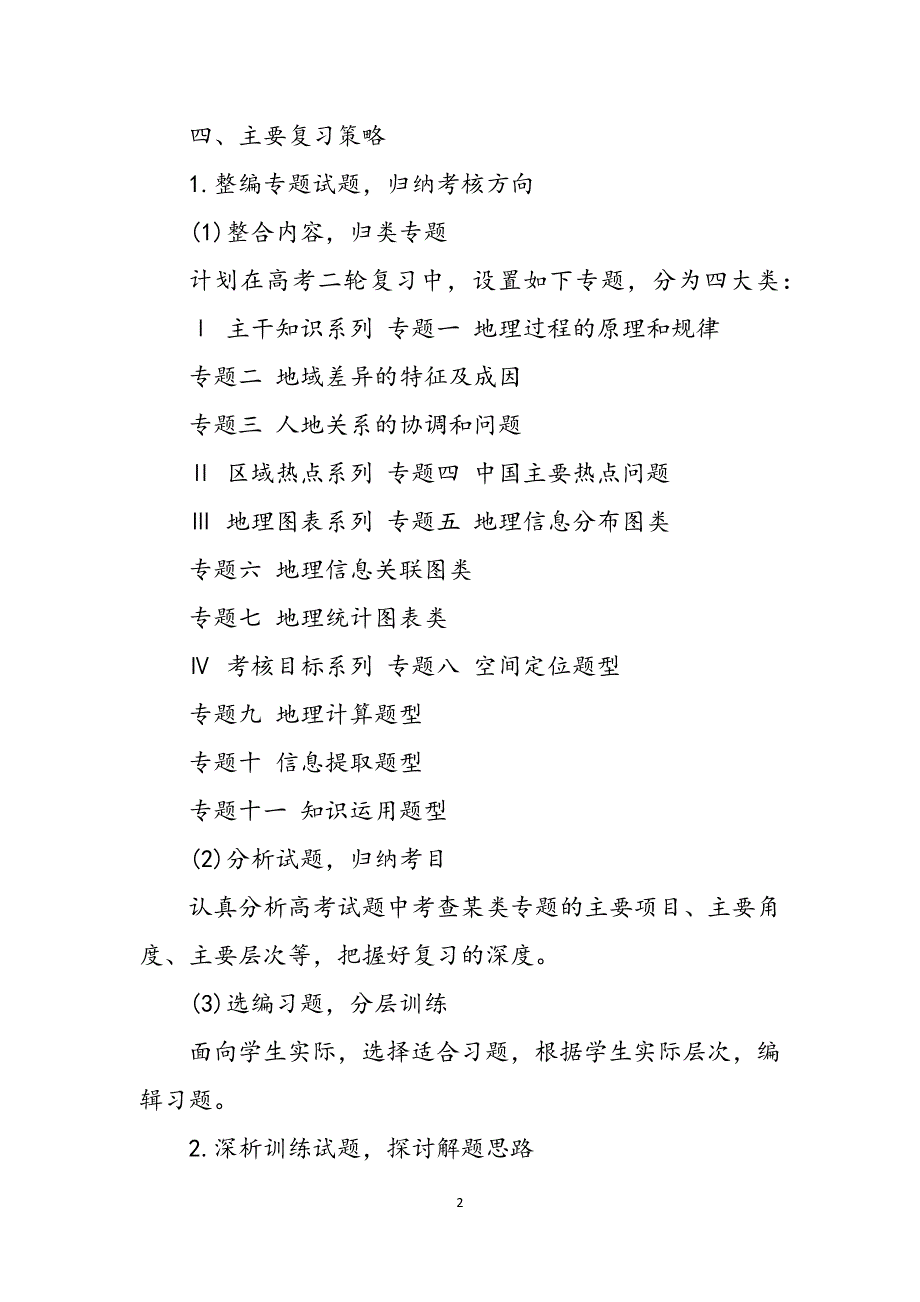 四、主要复习策略
1.整编专题试题，归纳考核方向
(1)整合内容，归类专题
计划在高考二轮复习中，设置如下专题，分为四大类：
Ⅰ 主干知识系列 专题一 地理过程的原理和规律
专题二 地域差异的特征及成因
专题三 人地关系的协调和问题
Ⅱ 区域热点系列 专题四 中国主要热点问题
Ⅲ 地理图表系列 专题五 地理信息分布图类
专题六 地理信息关联图类
专题七 地理统计图表类
Ⅳ 考核目标系列 专题八 空间定位题型
专题九 地理计算题型
专题十 信息提取题型
专题十一 知识运用题型
(2)分析试题，归纳考目
认真分析高考试题中考查某类专题的主要项目、主要角
度、主要层次等，把握好复习的深度。
(3)选编习题，分层训练
面向学生实际，选择适合习题，根据学生实际层次，编
辑习题。
2.深析训练试题，探讨解题思路
2